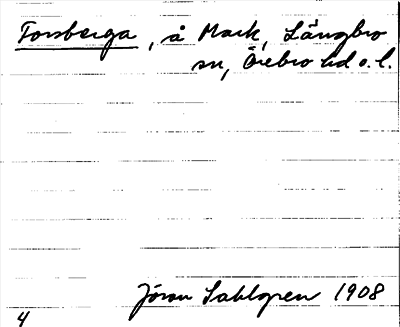 Torsberga, å Mark, Längbro
sn, Örebro hd o. l.
Jöran Sahlgren 1908
4